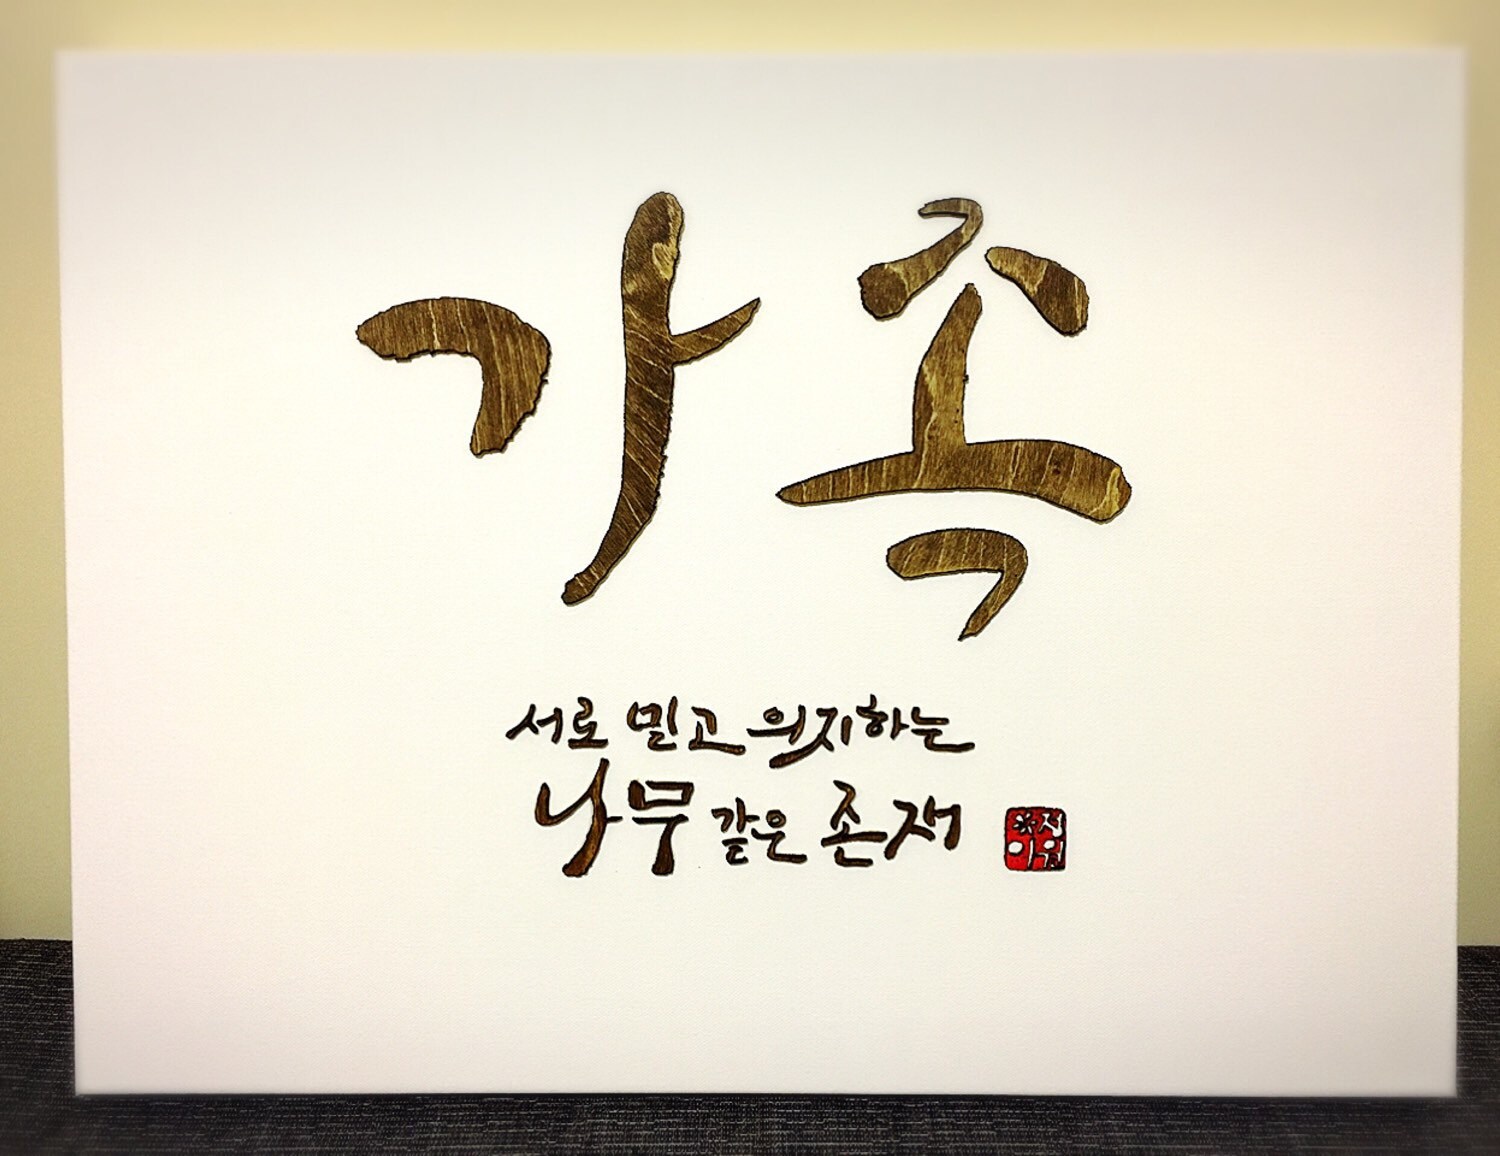 가족
서로 믿고 의지하는
나무 같은 존재